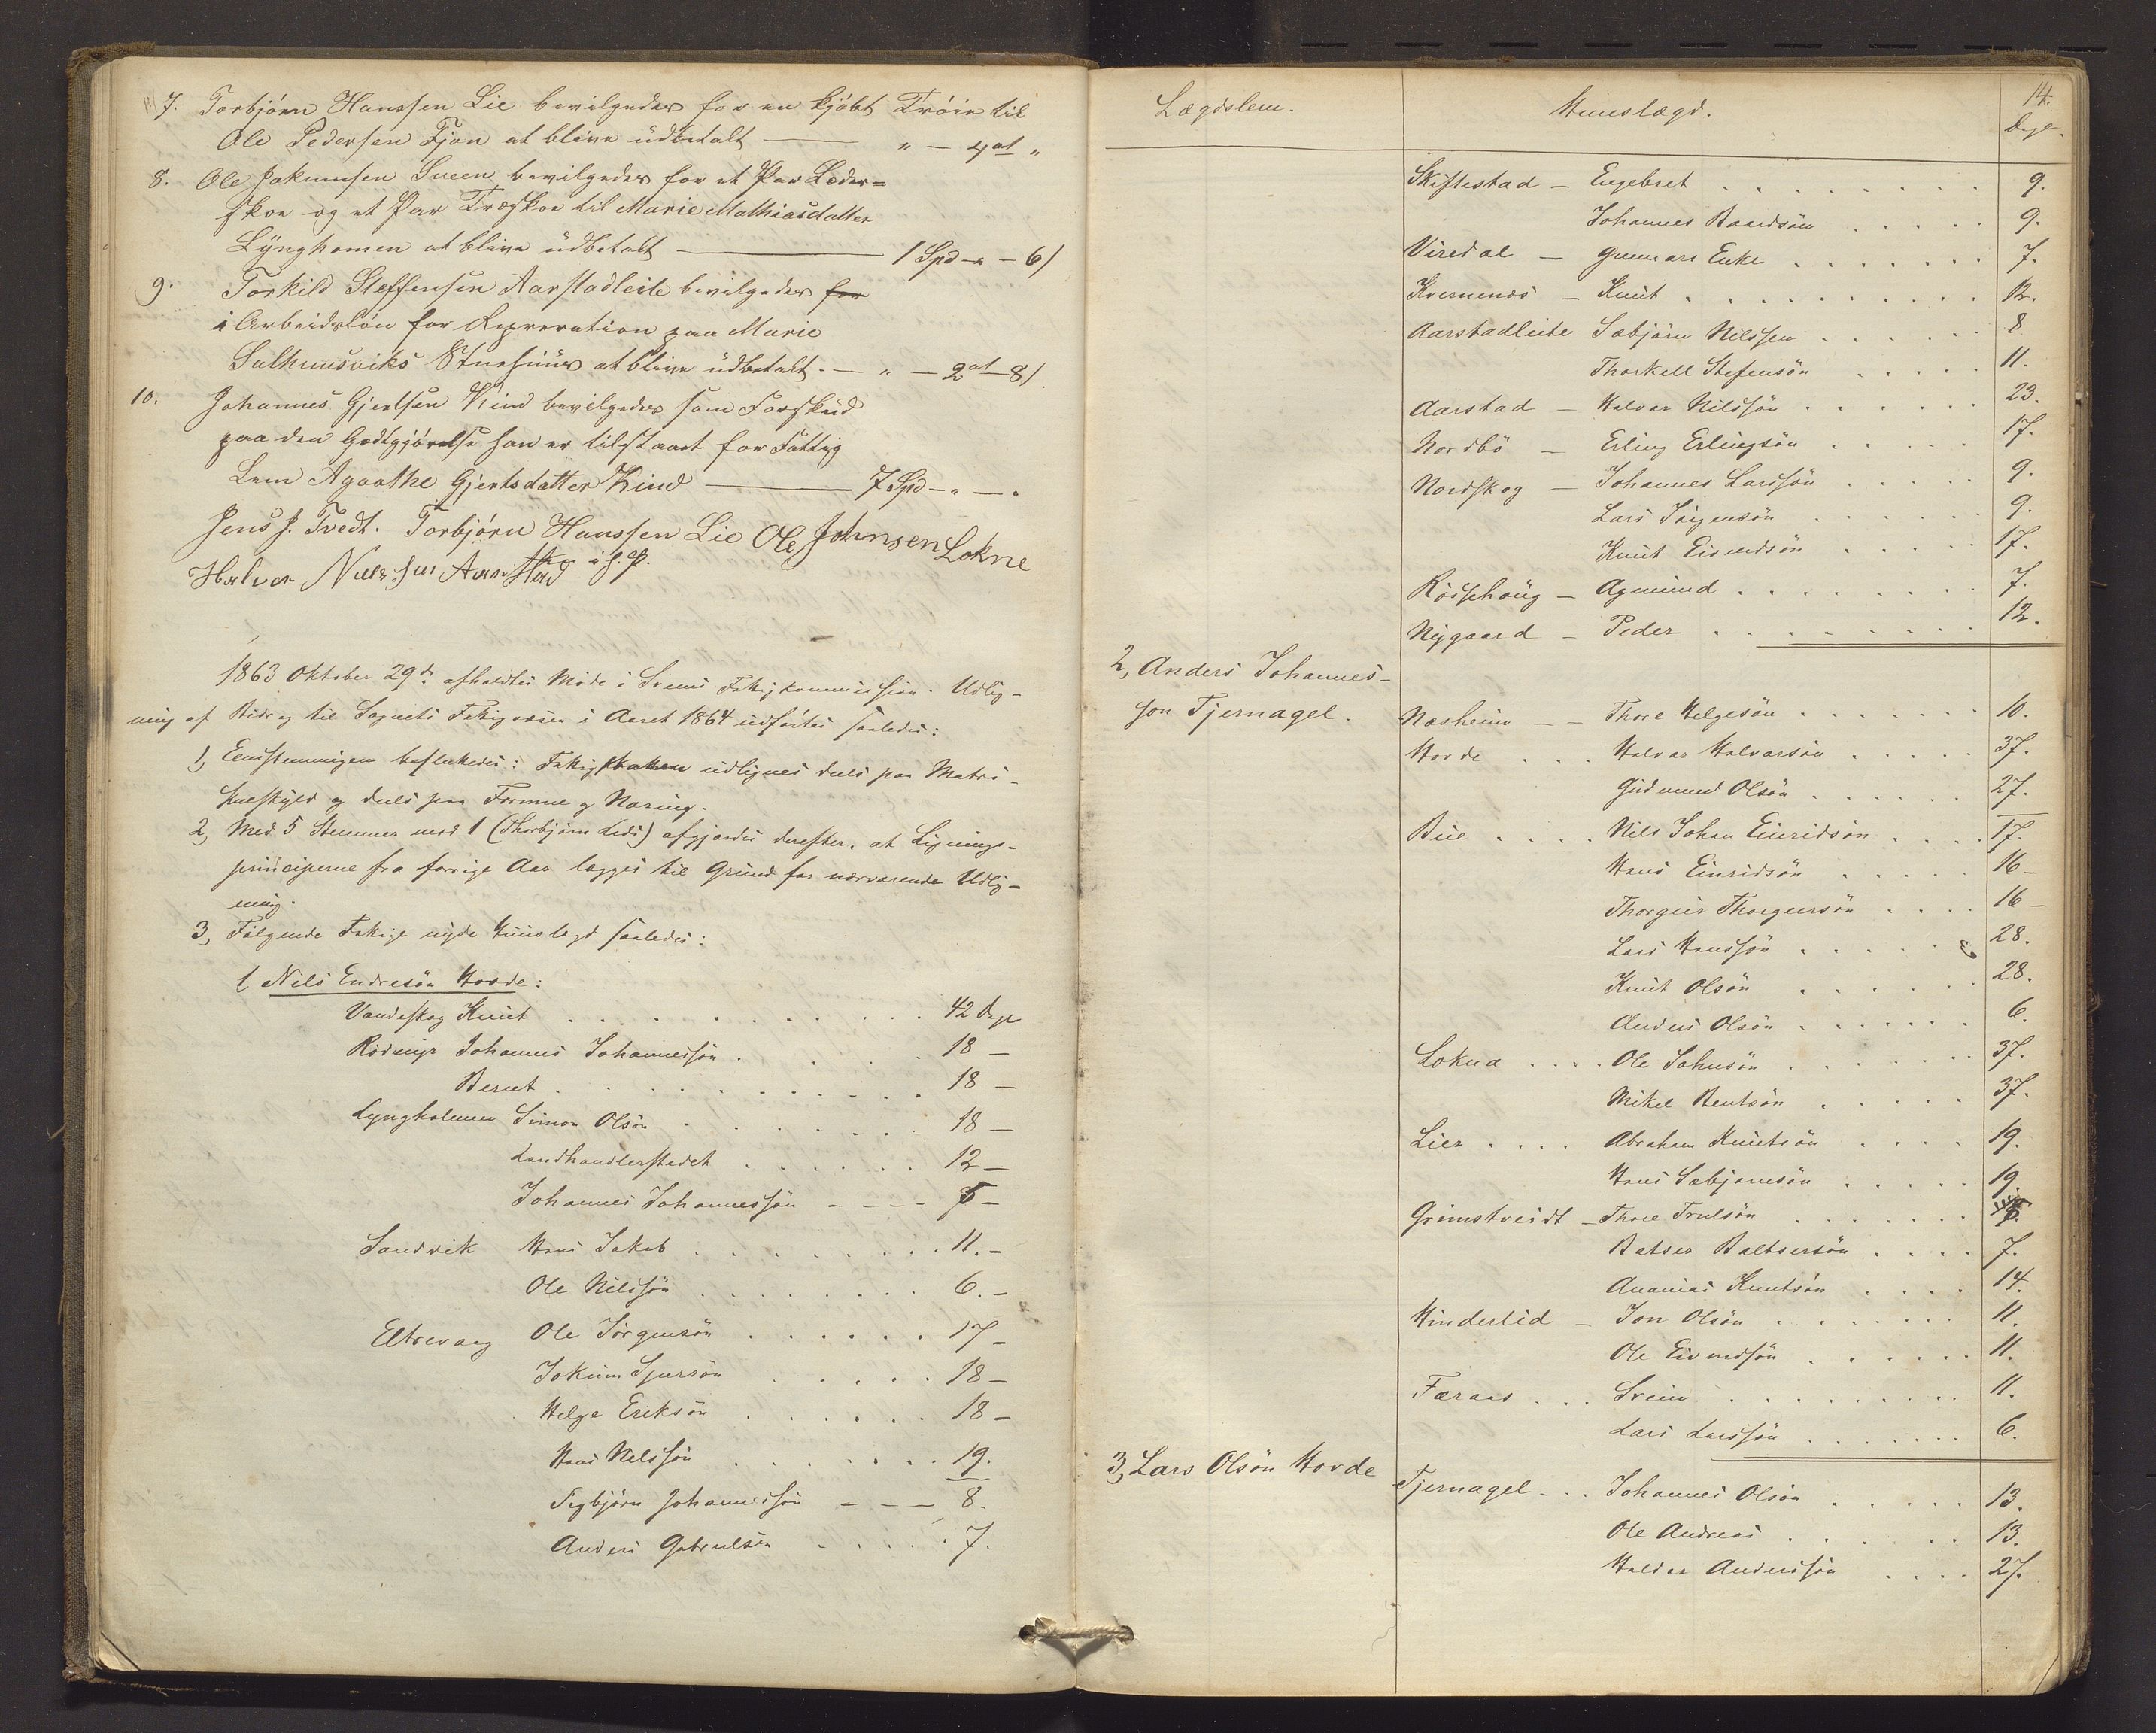 7. Torbjörn Hanssen Lie bevilgedes for en kjöbt Tröie til
Ole Pedersen Fjon at blive üdbetalt — " — 4 ort "
8. Ole Jokumsen Sveen bevilgedes for et Par Læder=
skoe og et Par Træskoe til Marie Mathiasdatter
Lÿngholmen at blive üdbetalt — 1 Spd - " - 6 s
9. Torkild Steffensen Aarstadleite bevilgedes for
i Arbeidslön for Reparation paa Marie
Valhamsviks Stuehüüs at blive üdbetalt. — " — 2 ort 8 s.
10. Johannes Gjertsen Kind bevilgedes som Forskud
paa den Godtgjörelse han er tilstaaet for Fattig
Lem Agaathe Gjertsdatter Kind — 7 Spd - " - "
Jens J. Tvedt. Torbjörn Hanssen Lie Ole Johnsen Lokne
Halvor Nielssen Aarstad i h. P.
1863 Oktober 29de afholdtes Möde i Sveens Fattigkommission. Udlig-
ning af Bidrag til Sognets Fattigvæsen i Aaret 1864 udförtes saaledes:
1, Eenstemmigen besluttedes: Fattigskatten udlignes deels paa Matri-
kuelskÿld og deels paa Formue og Næring.
2, Med 5 Stemmer mod 1 (Thorbjörn Lids) afgjordes derefter, at Lignings-
principerne fra forrige Aar lægges til Grund for nærværende Udlig-
ning.
3, Fölgende Fattige nyde Huuslægd saaledes:
1 Nils Endresön Hovde:
Vandskog Knut . . . 42 Dage
Rödmyr Johannes Johannessön . . . 18 —
Bernt . . . 18 —
Lyngholmen Simon Olsön . . . 18 —
Landhandlerstedet . . . 12 —
Johannes Johannessön - - - - 5 —
Sandvik Hans Jakob . . . 11. —
Ole Nilssön . . . 6. —
Eltrevaag Ole Jörgensön . . . 17 —
Jokum Sjursön . . . 18 —
Helge Eriksön . . . 18 —
Hans Nelssön . . . 19.
Sigbjörn Johannessön - - - 8.
Anders Gabrielsen . . . 7.
14.
Lægdslem. Huuslægd. Dage.
Skiftestad - Engebret . . . 9.
Johannes Baardsön . . . 9.
Viredal - Gunnars Enke . . . 7.
Kvernenæs - Knut . . . 12.
Aarstadleite Sæbjörn Nilssen . . . 8
Thorkell Stefensön . . . 11.
Aarstad - Halvor Nilssön . . . 23.
Nordbö - Erling Erlingsön . . . 17.
Nordskog - Johannes Larssön . . . 9.
Lars Jörgensön . . . 9.
Knut Eivindsön . . . 17.
Rösschaug - Agmund . . . 7.
Nygaard - Peder . . . 12.
2, Anders Johannes-
son Tjernagel. Næsheim - - Thore Helgesön . . . 10.
Hovde . . . Halvor Halvorsön . . . 37.
Gudmund Olsön . . . 27.
Bue . . . Nils Johan Einridsön . . . 17.
Hans Einridsön . . . 16 —
Thorgeir Thorgeirsön . . . 16 —
Lars Hanssön . . . 28.
Knut Olsön . . . 28.
Anders Olsön . . . 6.
Lokna . . . Ole Johnsön . . . 37.
Mikel Bentsön . . . 37.
Lier . . . Abraham Knutsön . . . 19.
Hans Sæbjørnsön . . . 19.
Grimstveidt - Thore Trulsön . . .
Batser Baltsersön . . . 7.
Ananias Knutsön . . . 14.
Hinderlid - Jon Olsön . . . 11.
Ole Eivindsön . . . 11.
Færaas . . . Svein . . . 11.
Lars Larssön . . . 6.
3, Lars Olsön Hovde Tjernagel . . . Johannes Olsön . . . 13.
Ole Andreas . . . 13.
Haldor Anderssön . . . 27.